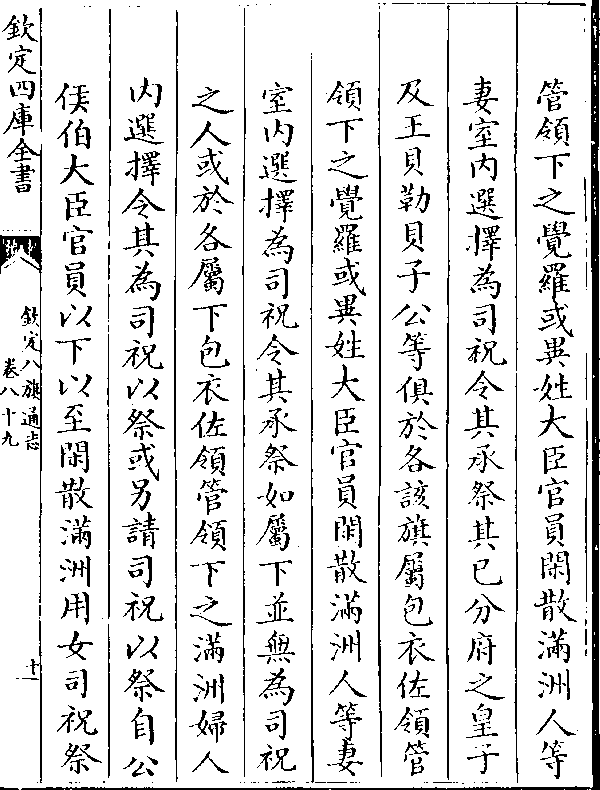 管領下之覺羅或異姓大臣官員閑散滿洲人等
妻室内選擇為司祝令其承祭其已分府之皇子
及王貝勒貝子公等俱於各該旗屬包衣佐領管
領下之覺羅或異姓大臣官員閑散滿洲人等妻
室内選擇為司祝令其承祭如屬下並無為司祝
之人或於各屬下包衣佐領管領下之滿洲婦人
内選擇令其為司祝以祭或另請司祝以祭自公
侯伯大臣官員以下以至閑散滿洲用女司祝祭
欽定四庫全書
欽定八旗通志
卷八十九
十一